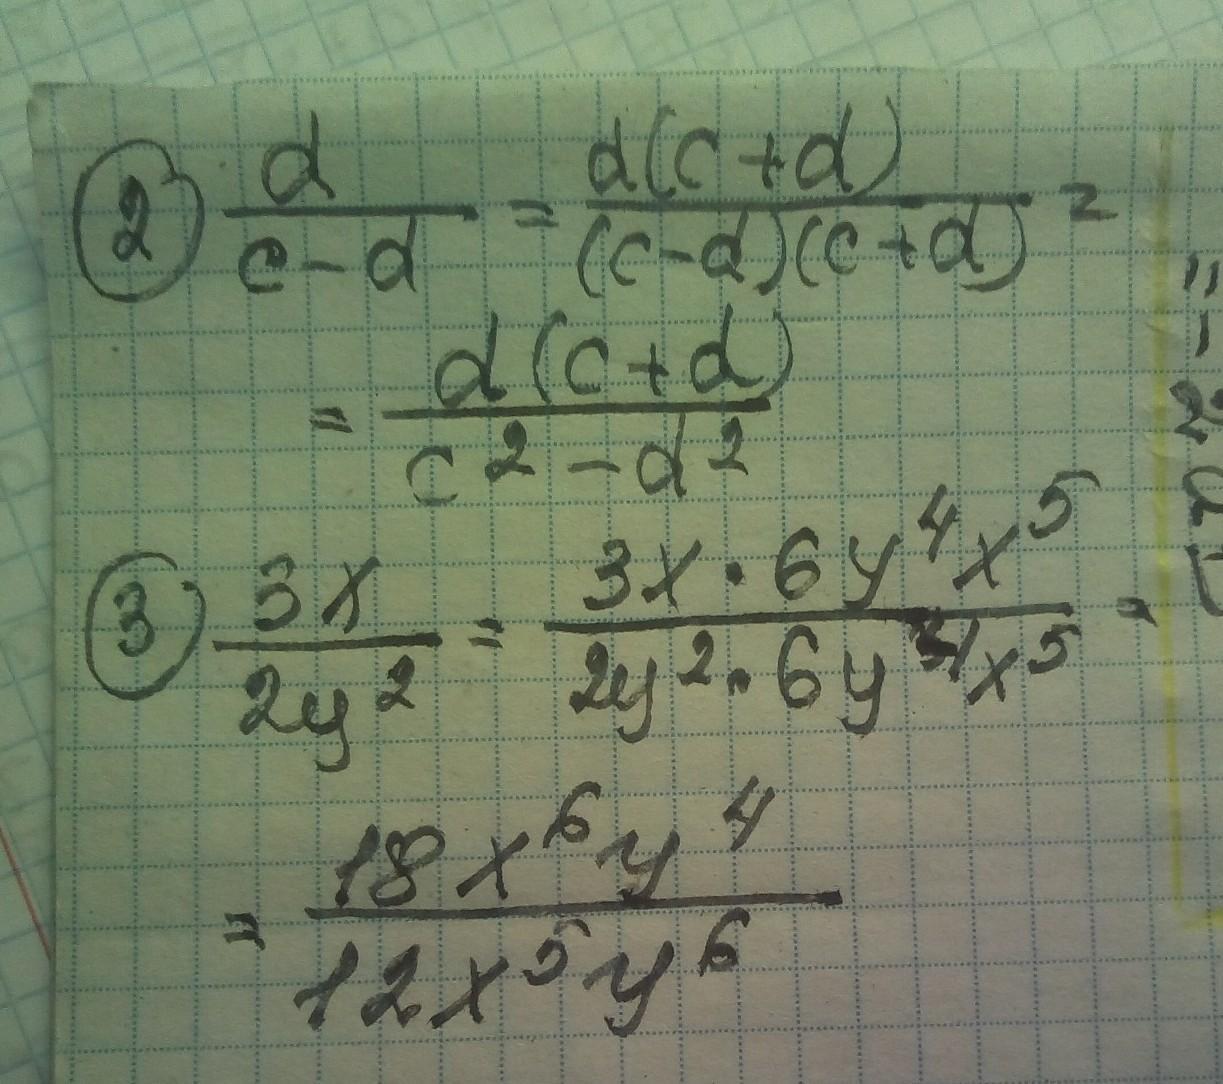 ② d/(c-d) = d(c+d)/((c-d)(c+d)) =
= d(c+d)/(c²-d²)
③ 3x/(2y²) = (3x·6y⁴x⁵)/(2y²·6y⁴x⁵) =
= 18x⁶y⁴/(12x⁵y⁶)